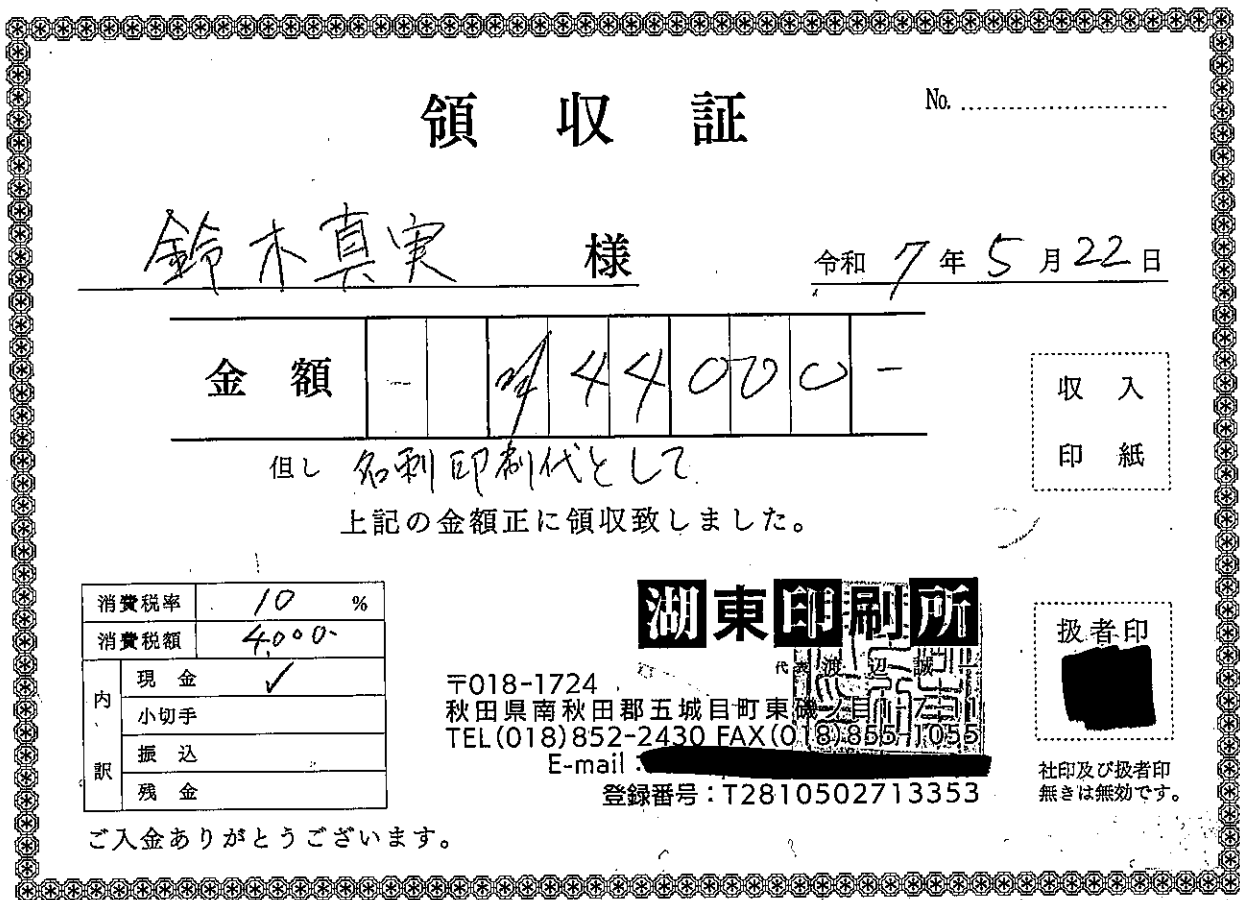 領収証
No.
鈴木真実 様
令和 7年 5月 22日
金額 - ¥44000 -
但し 名刺印刷代として
上記の金額正に領収致しました。
収入
印紙
消費税率 10 %
消費税額 4,000-
内訳
現金 ✓
小切手
振込
残金
湖東印刷所
代表 渡辺誠一
〒018-1724
秋田県南秋田郡五城目町東磯ノ目1-7-1
TEL(018)852-2430 FAX(018)855-1055
E-mail:
登録番号:T2810502713353
扱者印
社印及び扱者印
無きは無効です。
ご入金ありがとうございます。